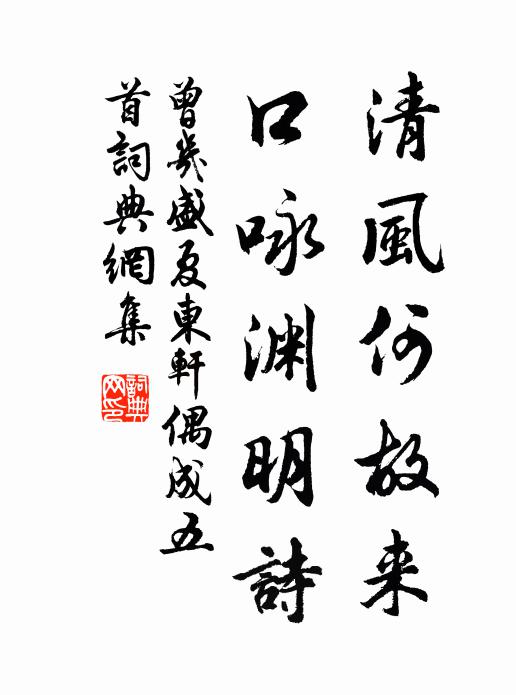 清風何故来
口咏渊明詩
曾幾盛夏東軒偶成五
首詞典網集
詞典网印